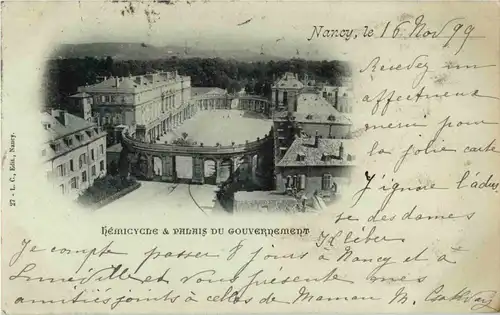 Nancy, le 16 Nov 99
Recevez un
affectueux
merci pour
la jolie carte
J'ignore l'adres
se des dames
27 - L. C., Edit., Nancy.
HÉMICYCLE & PALAIS DU GOUVERNEMENT
Je compte passer 8 jours à Nancy et à
Lunéville et vous présente mes
amitiés joints à celles de Maman M.